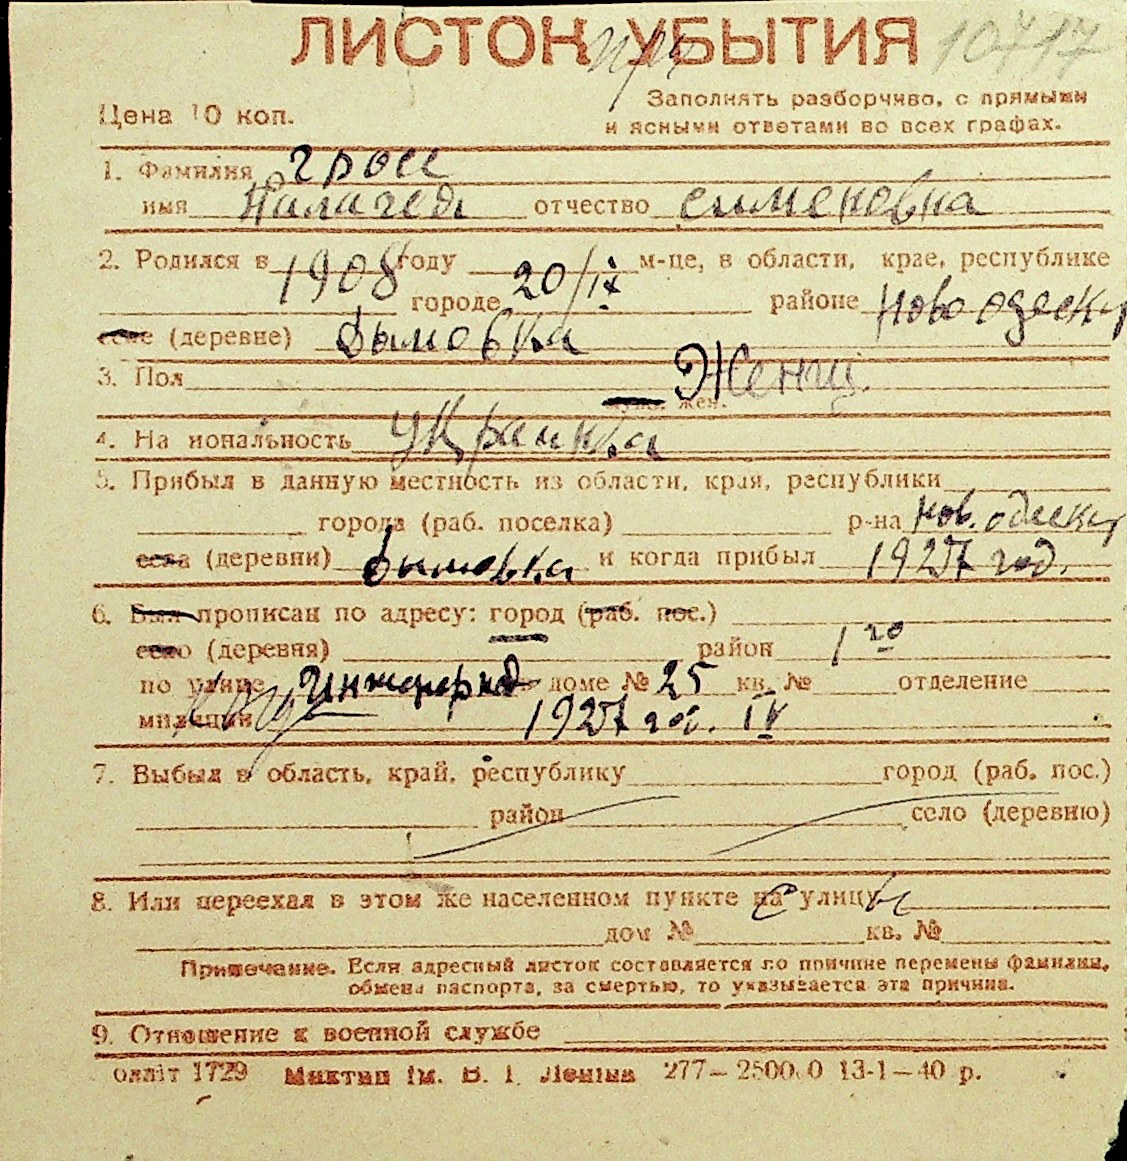 ЛИСТОК УБЫТИЯ 10717
Цена 10 коп.
Заполнять разборчиво, с прямыми
и ясными ответами во всех графах.
1. Фамилия Гросс
имя отчество Сименовна
2. Родился в 1908 году м-це, в области, крае, республике
городе 20/IX районе Ново одески
селе (деревне) Дымовка
3. Пол Женщ.
муж. жен.
4. На иональность Украинка
5. Прибыл в данную местность из области, края, республики
города (раб. поселка) р-на Нов. одески
села (деревни) Дымовка и когда прибыл 1927 год.
6. Был прописан по адресу: город (раб. пос.)
село (деревня) район 1го
по улице доме № 25 кв. № отделение
милиции 1927 год. IV
7. Выбыл в область, край, республику город (раб. пос.)
район село (деревню)
8. Или переехал в этом же населенном пункте на улицу
дом № кв. №
Примечание. Если адресный листок составляется по причине перемены фамилии,
обмена паспорта, за смертью, то указывается эта причина.
9. Отношение к военной службе
олліт 1729 Миктип ім. В. І. Леніна 277—25000 13-1—40 р.